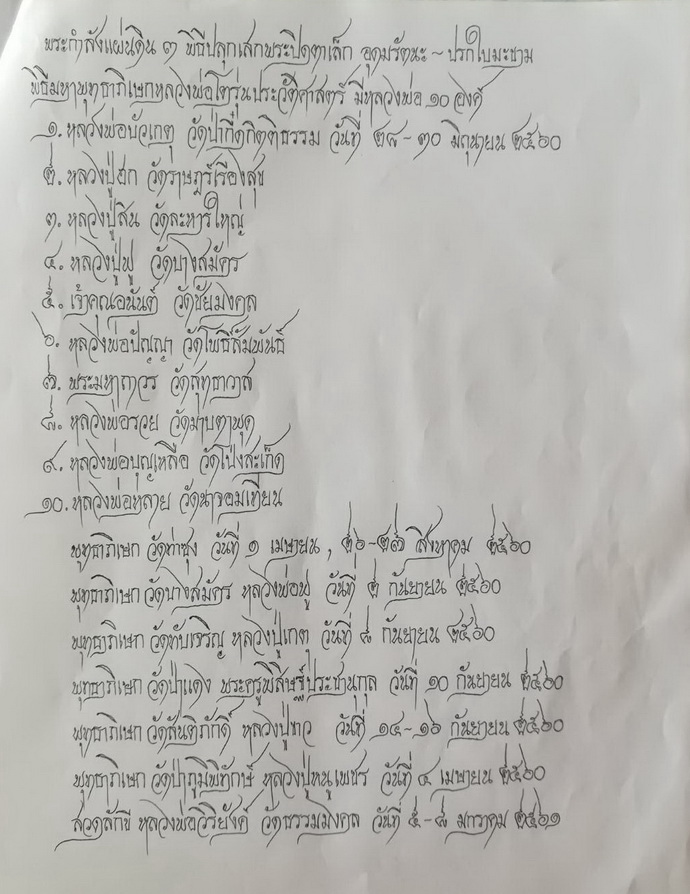 พระกำลังแผ่นดิน ๓ พิธีปลุกเสกพระปิดตาเล็ก อุดมรัตนะ ~ ปรกใบมะขาม
พิธีมหาพุทธาภิเษกหลวงพ่อโตรุ่นประวัติศาสตร์ มีหลวงพ่อ ๑๐ องค์
๑. หลวงพ่อบัวเกตุ วัดป่ากี๋ดกิตติธรรม วันที่ ๒๘-๓๐ มิถุนายน ๒๕๖๐
๒. หลวงปู่ฮก วัดราษฎร์เรืองสุข
๓. หลวงปู่สิน วัดละหารใหญ่
๔. หลวงปู่ฟู วัดบางสมัคร
๕. เจ้าคุณอนันต์ วัดชัยมงคล
๖. หลวงพ่อปัญญา วัดโพธิ์สัมพันธ์
๗. พระมหาถาวร วัดสุทธาวาส
๘. หลวงพ่อรวย วัดมาบตาพุด
๙. หลวงพ่อบุญเหลือ วัดโป่งสะเก็ด
๑๐. หลวงพ่อหลาย วัดนาจอมเทียน
พุทธาภิเษก วัดท่าซุง วันที่ ๑ เมษายน , ๒๖-๒๗ สิงหาคม ๒๕๖๐
พุทธาภิเษก วัดบางสมัคร หลวงพ่อฟู วันที่ ๒ กันยายน ๒๕๖๐
พุทธาภิเษก วัดทับเจริญ หลวงปู่เกตุ วันที่ ๘ กันยายน ๒๕๖๐
พุทธาภิเษก วัดป่าแดง พระครูพิสิษฐ์ประชานุกูล วันที่ ๑๐ กันยายน ๒๕๖๐
พุทธาภิเษก วัดสันติภักดิ์ หลวงปู่ขาว วันที่ ๑๔-๑๖ กันยายน ๒๕๖๐
พุทธาภิเษก วัดป่าภูมิพิทักษ์ หลวงปู่หนูเพชร วันที่ ๔ เมษายน ๒๕๖๐
สวดลักขี หลวงพ่อวิริยังค์ วัดธรรมมงคล วันที่ ๕-๘ มกราคม ๒๕๖๑